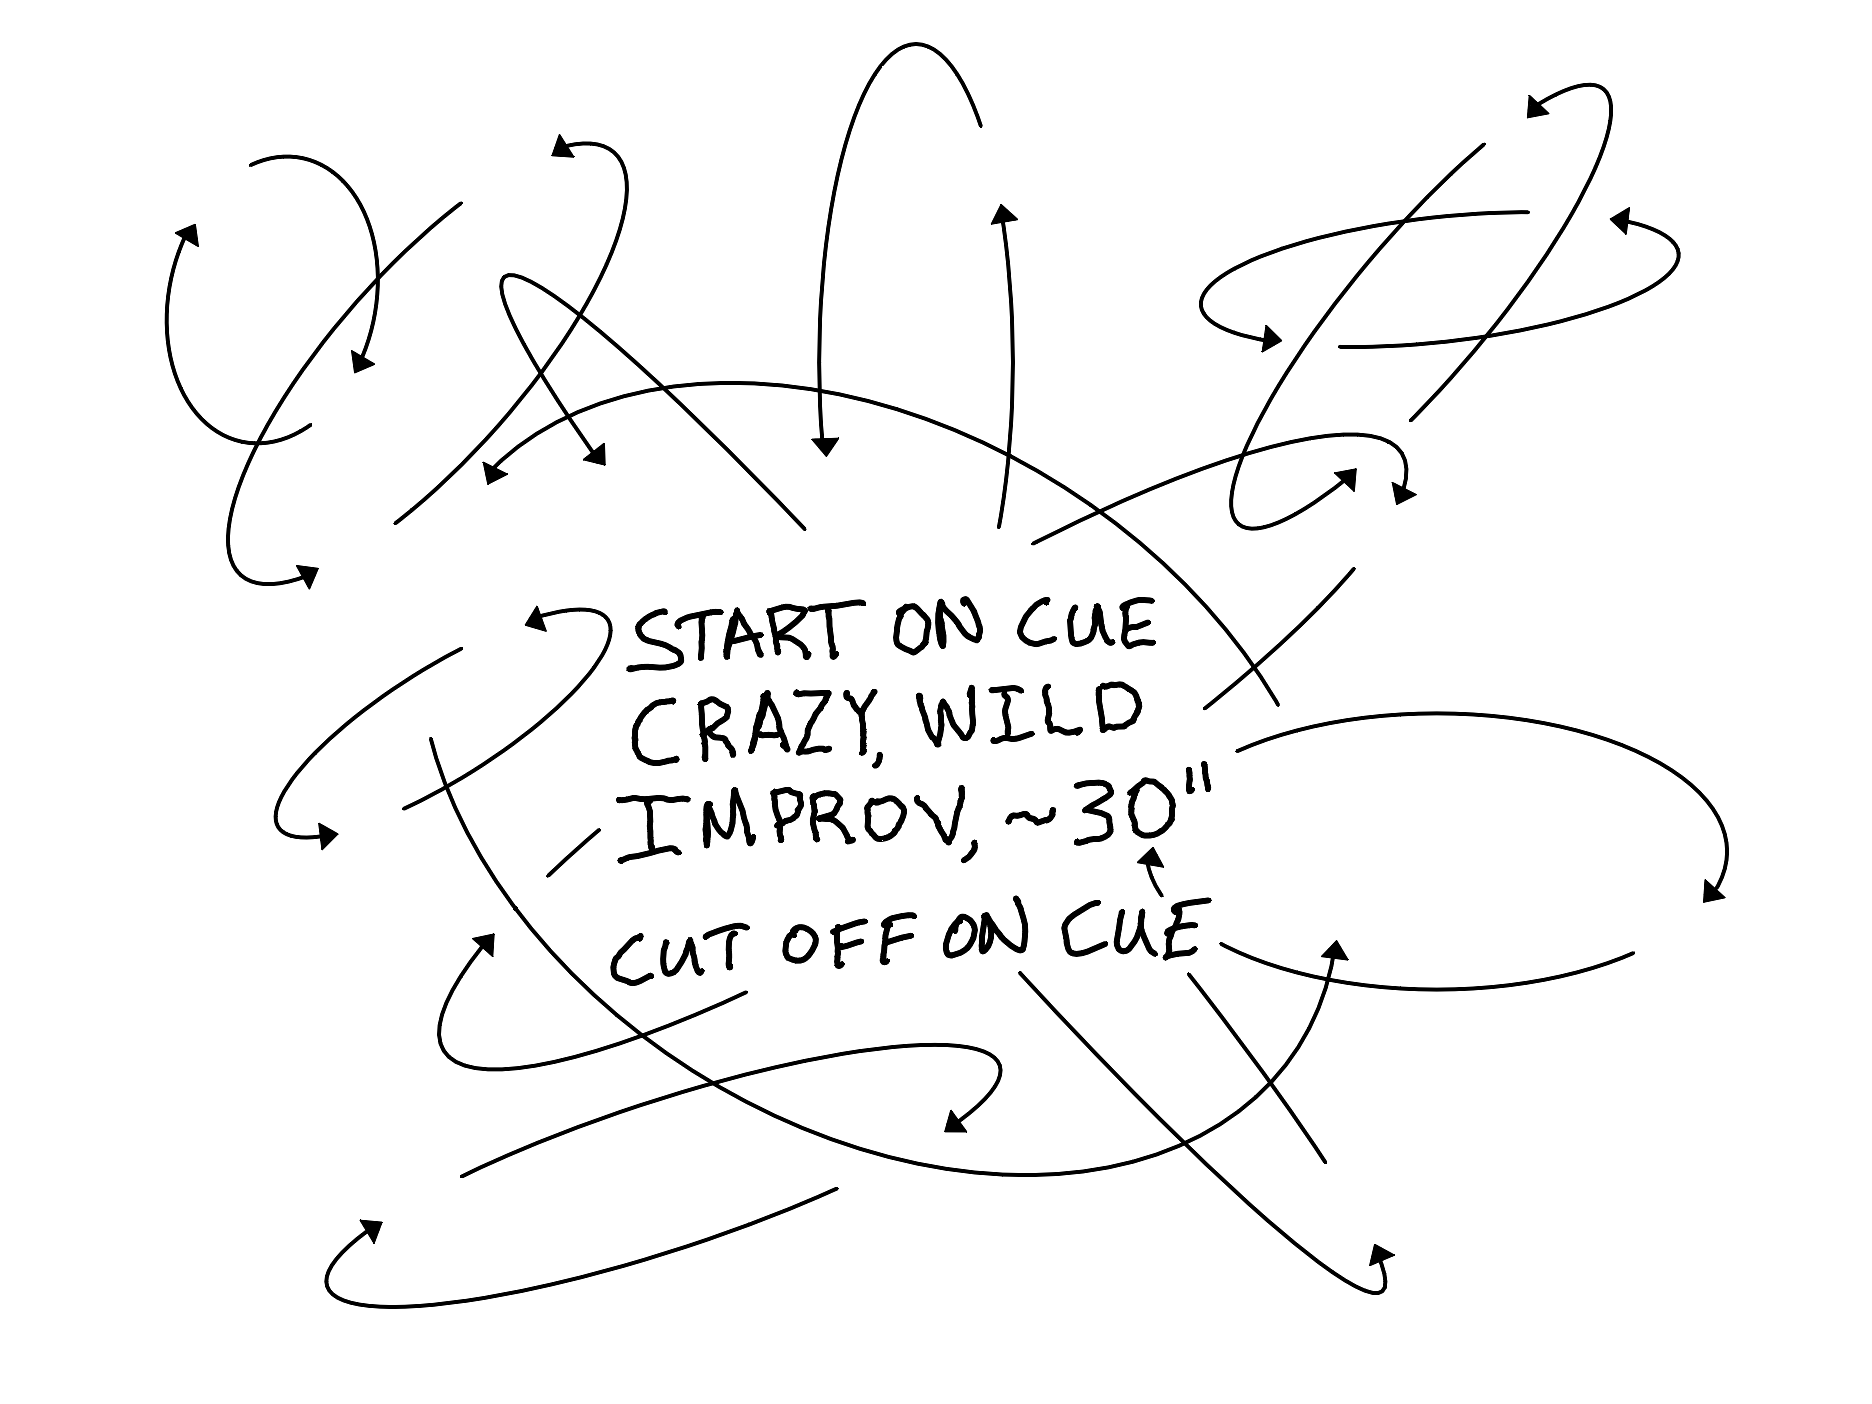 START ON CUE
CRAZY, WILD
IMPROV, ~30"
CUT OFF ON CUE